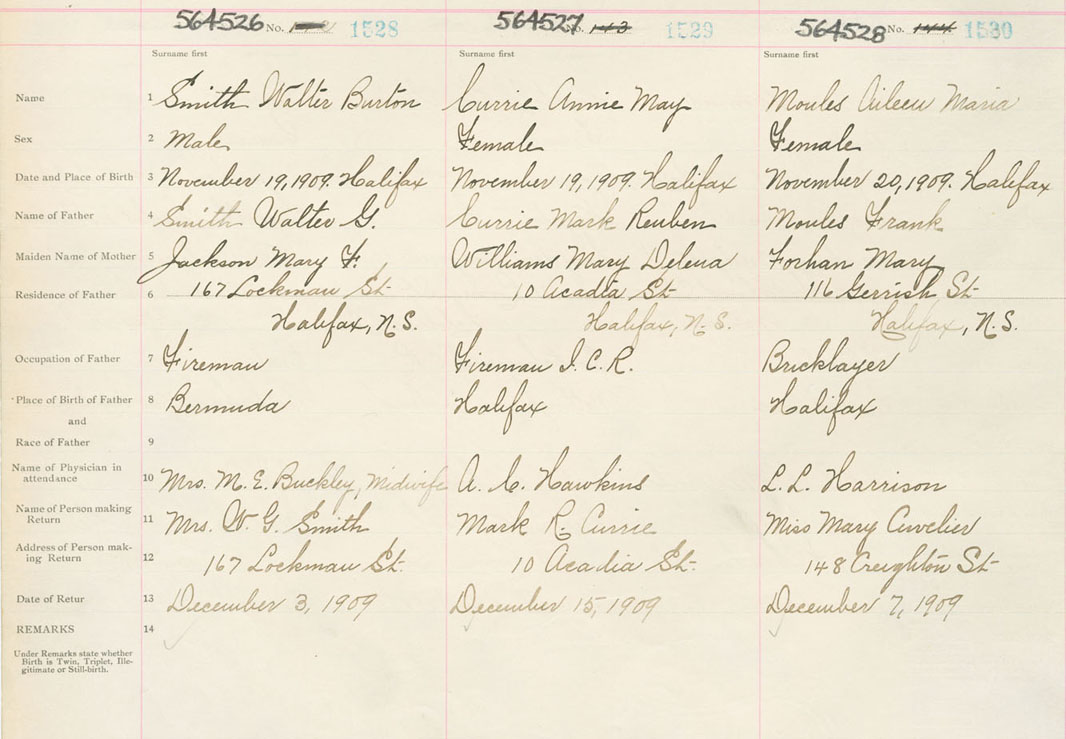 564526 No. 1528 564527 No. 143 1529 564528 No. 144 1530
Surname first Surname first Surname first
Name 1 Smith Walter Burton Currie Annie May Moules Aileen Maria
Sex 2 Male Female Female
Date and Place of Birth 3 November 19, 1909. Halifax November 19, 1909. Halifax November 20, 1909. Halifax
Name of Father 4 Smith Walter G. Currie Mark Reuben Moules Frank
Maiden Name of Mother 5 Jackson Mary F. Williams Mary Delena Forhan Mary
Residence of Father 6 167 Lockman St. 10 Acadia St. 116 Gerrish St.
Halifax, N.S. Halifax, N.S. Halifax, N.S.
Occupation of Father 7 Fireman Fireman I.C.R. Bricklayer
Place of Birth of Father 8 Bermuda Halifax Halifax
and
Race of Father 9
Name of Physician in attendance 10 Mrs. M. E. Buckley, Midwife A. C. Hawkins L. L. Harrison
Name of Person making Return 11 Mrs. W. G. Smith Mark R. Currie Miss Mary Cuvelier
Address of Person mak-
ing Return 12 167 Lockman St. 10 Acadia St. 148 Creighton St
Date of Retur 13 December 3, 1909 December 15, 1909 December 7, 1909
REMARKS 14
Under Remarks state whether
Birth is Twin, Triplet, Ille-
gitimate or Still-birth.